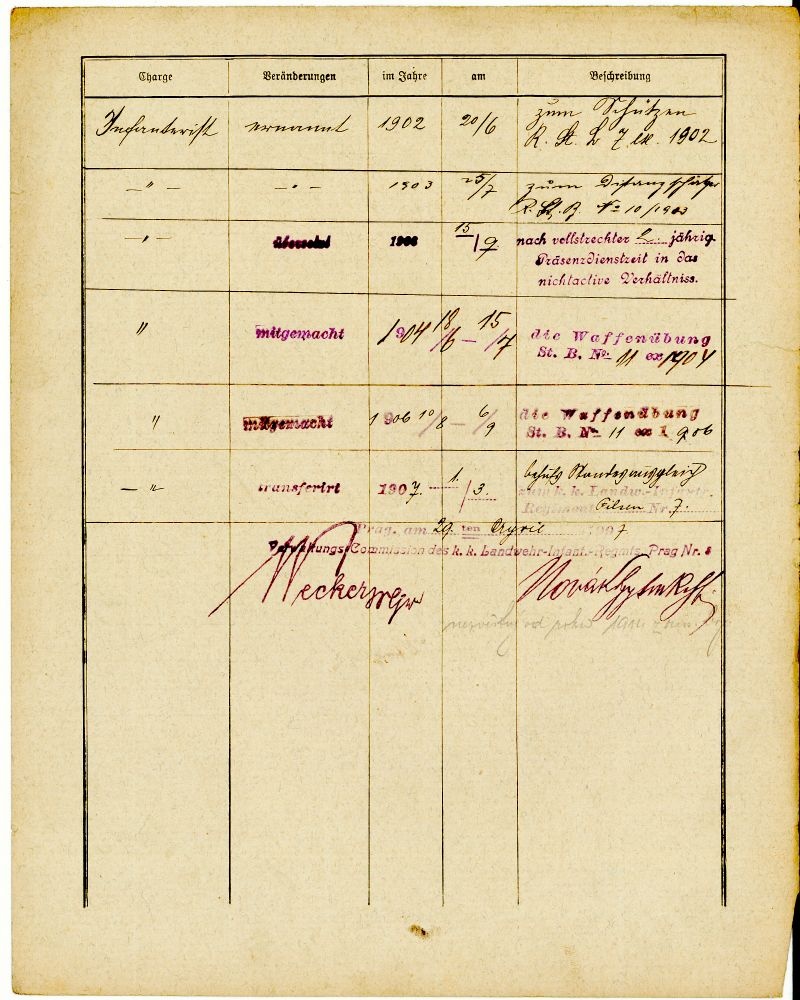 Charge Veränderungen im Jahre am Beschreibung
Infanterist ernannt 1902 20/6 zum Schützen
R. St. B 7 ex. 1902
— " — — " — 1903 25/7 zum Distanzschätzer
R. St. B. No 10/1903
— " — übersetzt 15/9 nach vollstreckter jährig.
Präsenzdienstzeit in das
nichtactive Verhältniss.
" mitgemacht 1904 18/6 — 15/7 die Waffenübung
St. B. No 11 ex 1904
" mitgemacht 1906 10/8 — 6/9 die Waffenübung
St. B. No 11 ex 1906
— " — transferirt 1907. 1./3. behufs Standesausgleich
zum k. k. Landw.-Infantr.
Regiment Pilsen Nr. 7.
Prag, am 29 ten April 1907
Verwaltungs-Commission des k. k. Landwehr-Infant.-Regmts. Prag Nr. 8
Wecker Mjr Novák